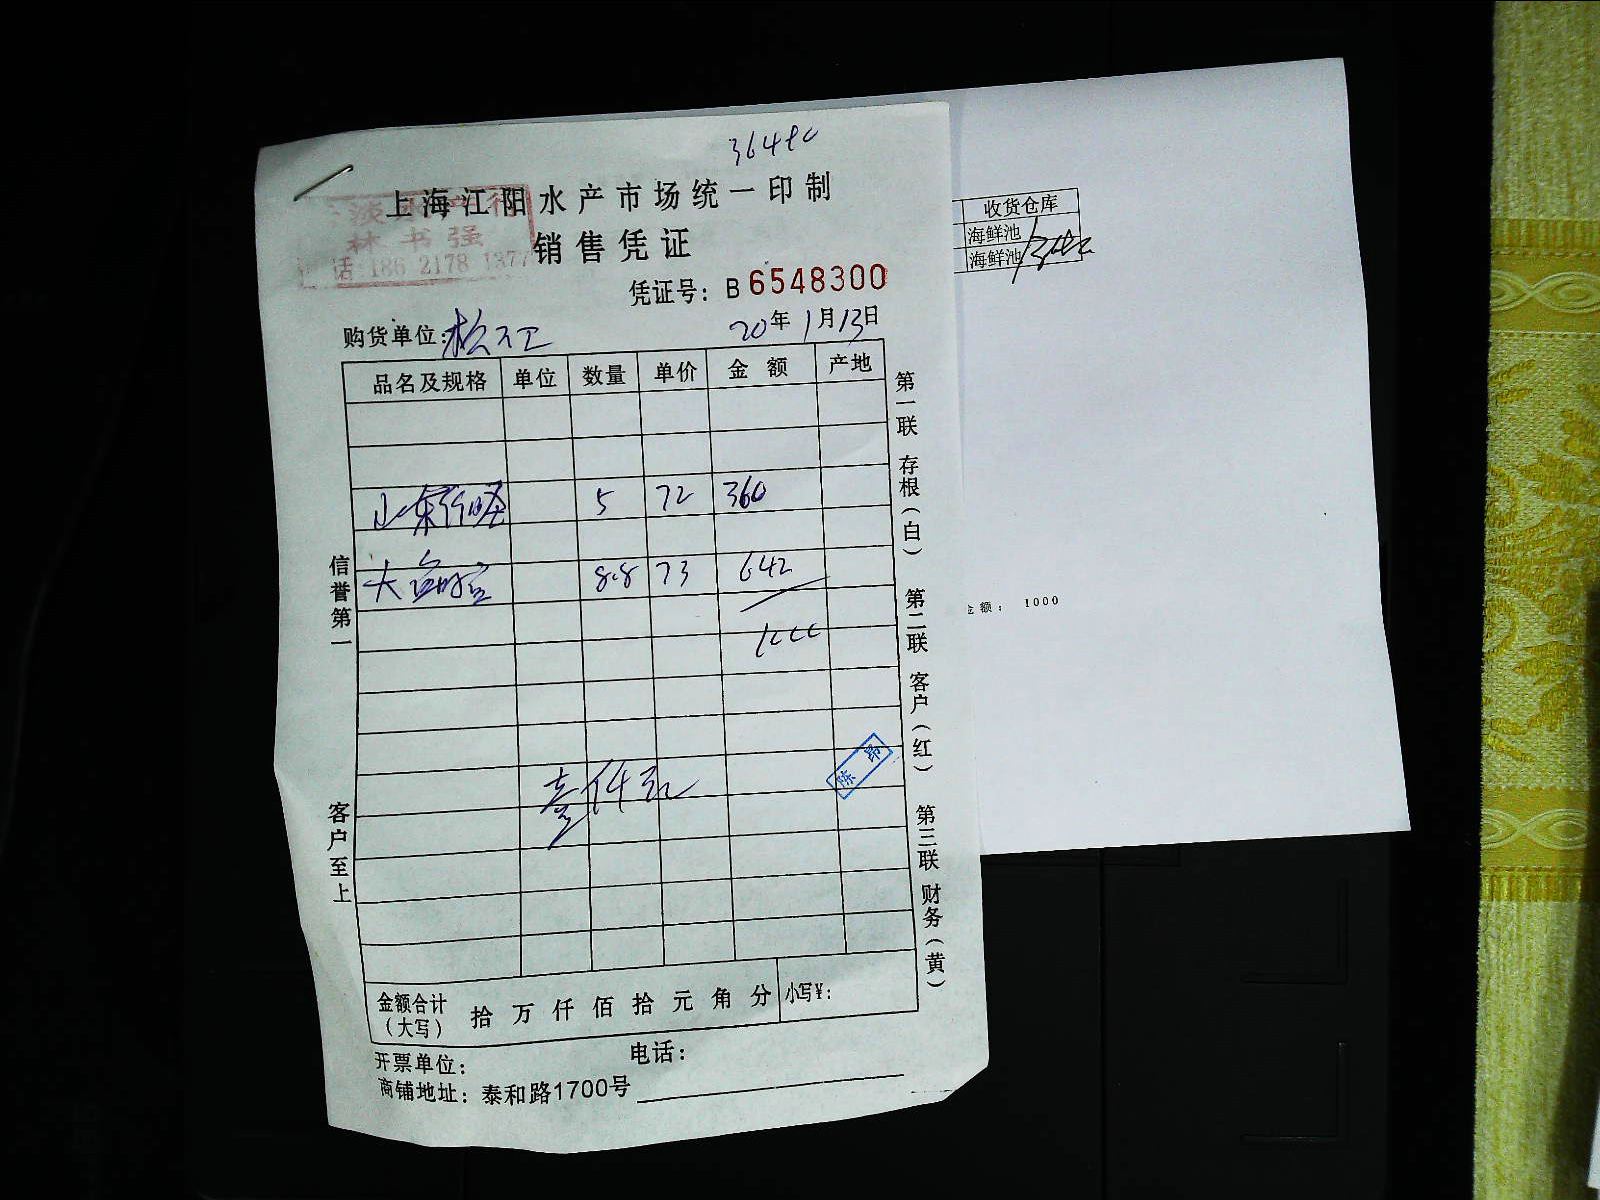 上海江阳水产市场统一印制
林书强
话:186 2178 1377
销售凭证
凭证号: B 6548300
购货单位:
20年1月13日
品名及规格 单位 数量 单价 金额 产地
山东 5 72 360
大 8.8 73 642
1000
壹仟元
陈昂
金额合计(大写) 拾 万 仟 佰 拾 元 角 分 小写¥:
开票单位: 电话:
商铺地址: 泰和路1700号
信誉第一
客户至上
第一联 存根(白)
第二联 客户(红)
第三联 财务(黄)
收货仓库
海鲜池
海鲜池
金额: 1000